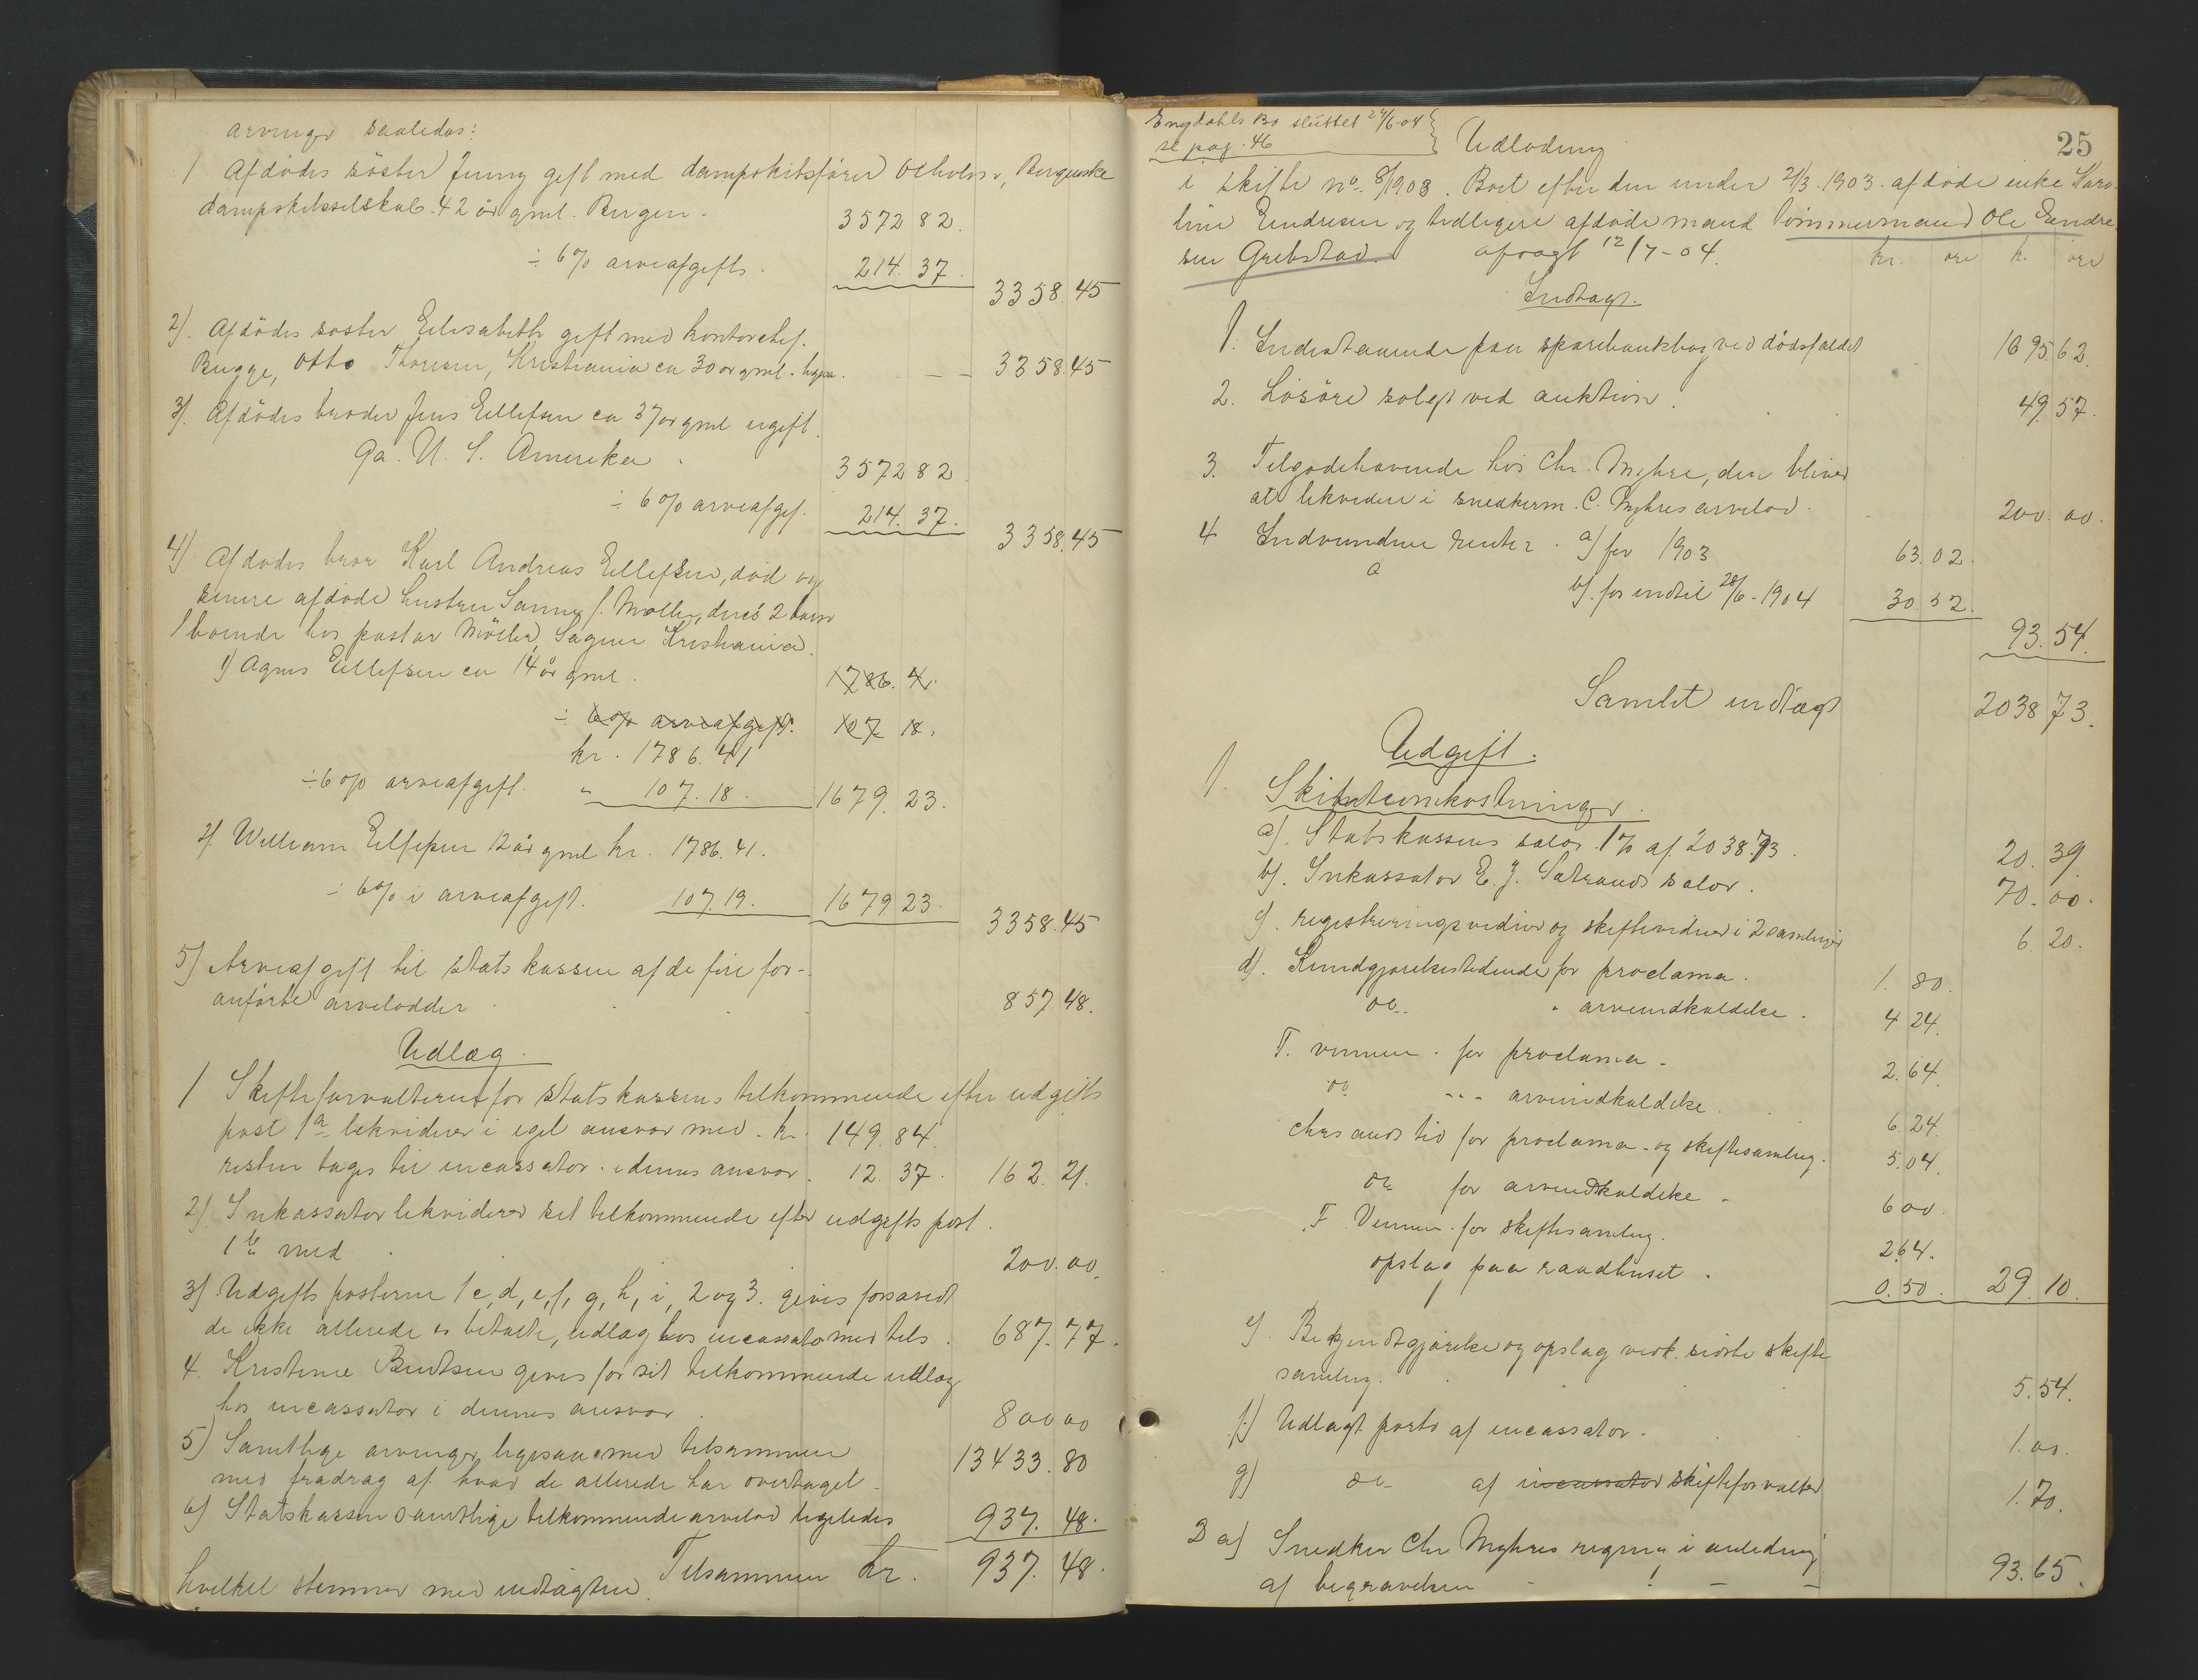 arvinger saaledes:
1 Afdödes söster Jenny gift med dampskibsförer Bergenske
dampskibsselskab. 42 år gml. Bergen. 3572 82.
÷ 6% arveafgift. 214. 37. 3358. 45
2). Afdödes söster Elisabeth gift med kontorchef.
Bugge, Otto Thoresen, Kristiania ca 30 år gml. – – 3358. 45
3). Afdödes broder Jens Ellefsen ca 37 år gml ugift.
U. S. Amerika. 3572 82
÷ 6% arveafgif. 214. 37. 3358. 45
4) Afdödes bror Karl Andreas Ellefsen, död og
senere afdöde hustru f. Möller, deres 2 barn
boende hos pastor Möller, Sagene Kristiania.
1) Agnes Ellefsen ca 14 år gml. 1786. 41.
÷ 6% arveafgift. 107 18.
kr. 1786. 41
÷ 6% arveafgift. " 107. 18. 1679. 23.
2). William Ellefsen 12 år gml kr. 1786. 41.
÷ 6% i arveafgift. 107. 19. 1679 23. 3358. 45
5) Arveafgift til statskassen af de fire for-
anförte arvelodder 857 48.
Udlæg.
1 Skifteforvalteren for statskassens tilkommende efter udgifts
post 1a likviderer i eget ansvar med. kr. 149. 84.
resten tages til incassator i dennes ansvar. 12. 37. 162. 21.
2) Inkassator likviderer sit tilkommende efter udgifts post.
1b med 200. 00.
3) Udgifts posterne 1 c, d, e, f, g, h, i, 2 og 3. gives forsaavidt
de ikke allerede er betalte, udlæg hos incassator med tils. 687. 77.
4. Kristine Bentsen gives for sit tilkommende udlæg
hos incassator i dennes ansvar. 800 00
5) Samtlige arvinger ligesaa med tilsammen 13433. 80
med fradrag af hvad de allerede har overtaget.
6) Statskassen samtlige tilkommende arvelod ligeledes 937. 48.
hvilket stemmer med indtægten. Tilsammen kr. 937. 48.
Engdahls Bo sluttet 24/6-04
se pag. 46
Udlodning 25
i skifte no. 8/1903. Boet efter den under 21/3. 1903. afdöde enke Karo-
line Endresen og tidligere afdöde mand tömmermand Ole Endre-
sen Grebstad. afsagt 12/7-04. kr. öre k. öre
Indtægt.
1. Indestaaende paa sparebankbog ved dödsfaldet 1695. 62.
2. Lösöre solgt ved auktion. 49. 57.
3. Tilgodehavende hos Chr. Myhre, den bliver
at likvidere i snedkerm. C. Myhres arvelod. 200. 00.
4 Indvundne renter. a) for 1903 63. 02.
b). for indtil 28/6-1904 30. 52.
93. 54.
Samlet indtægt 2038 73.
Udgift.
1. Skifteomkostninger.
a). Statskassens salær 1% af 2038.73. 20. 39.
b). Inkassator E. J. Satrands salær. 70. 00.
c). registreringsvidner og skiftevidner i 2 samlinger 6. 20.
d). Kundgjörelsestidende for proclama. 1. 80.
do. " arveindkaldelse. 4 24.
F. vennen. for proclama. 2. 64.
do - - - arveindkaldelse. 6. 24.
Chrsands tid for proclama. og skiftesamling. 5. 04.
do for arveindkaldelse. 6 00
F. Vennen. for skiftesamling. 2.64.
opslag paa raadhuset. 0. 50. 29. 10.
e). Bekjendtgjörelse og opslag vedk. sidste skifte
samling. 5. 54.
f.) Udlagt porto af incassator. 1. 00.
g) do – af incassator skifteforvalter 1. 70.
2 a) Snedker Chr Myhres regning i anledning
af begravelsen – – – 93. 65.